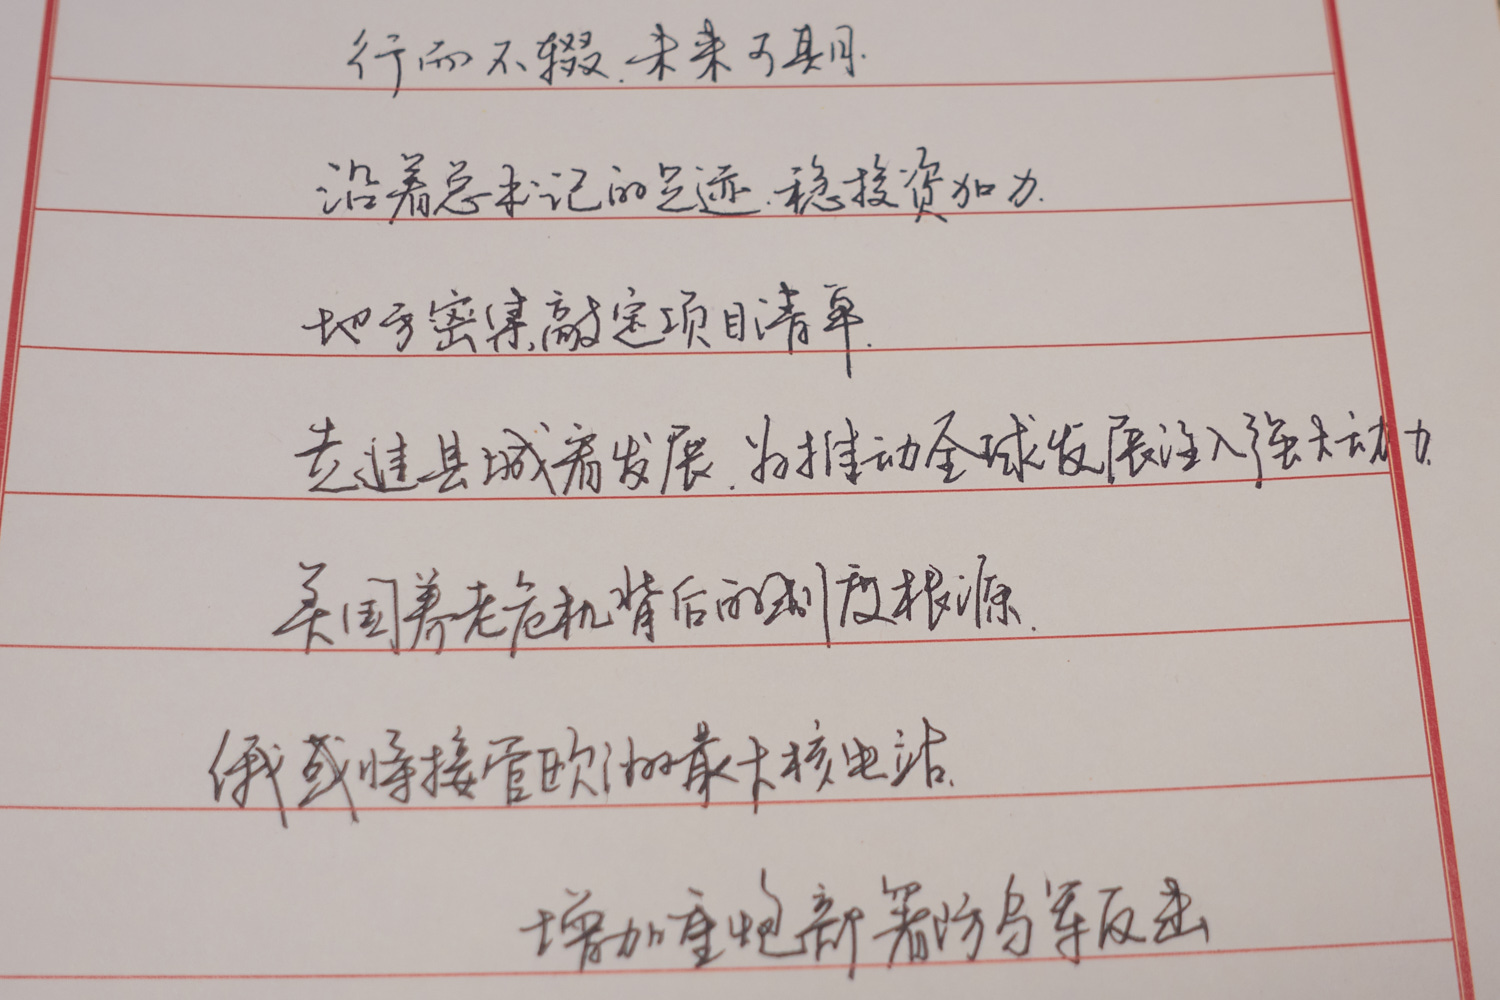 行而不辍.未来可期.
沿着总书记的足迹.稳投资加力.
地方密集敲定项目清单.
走进县城看发展.为推动全球发展注入强大动力.
美国养老危机背后的制度根源.
俄或将接管欧洲最大核电站.
增加重炮部署防乌军反击